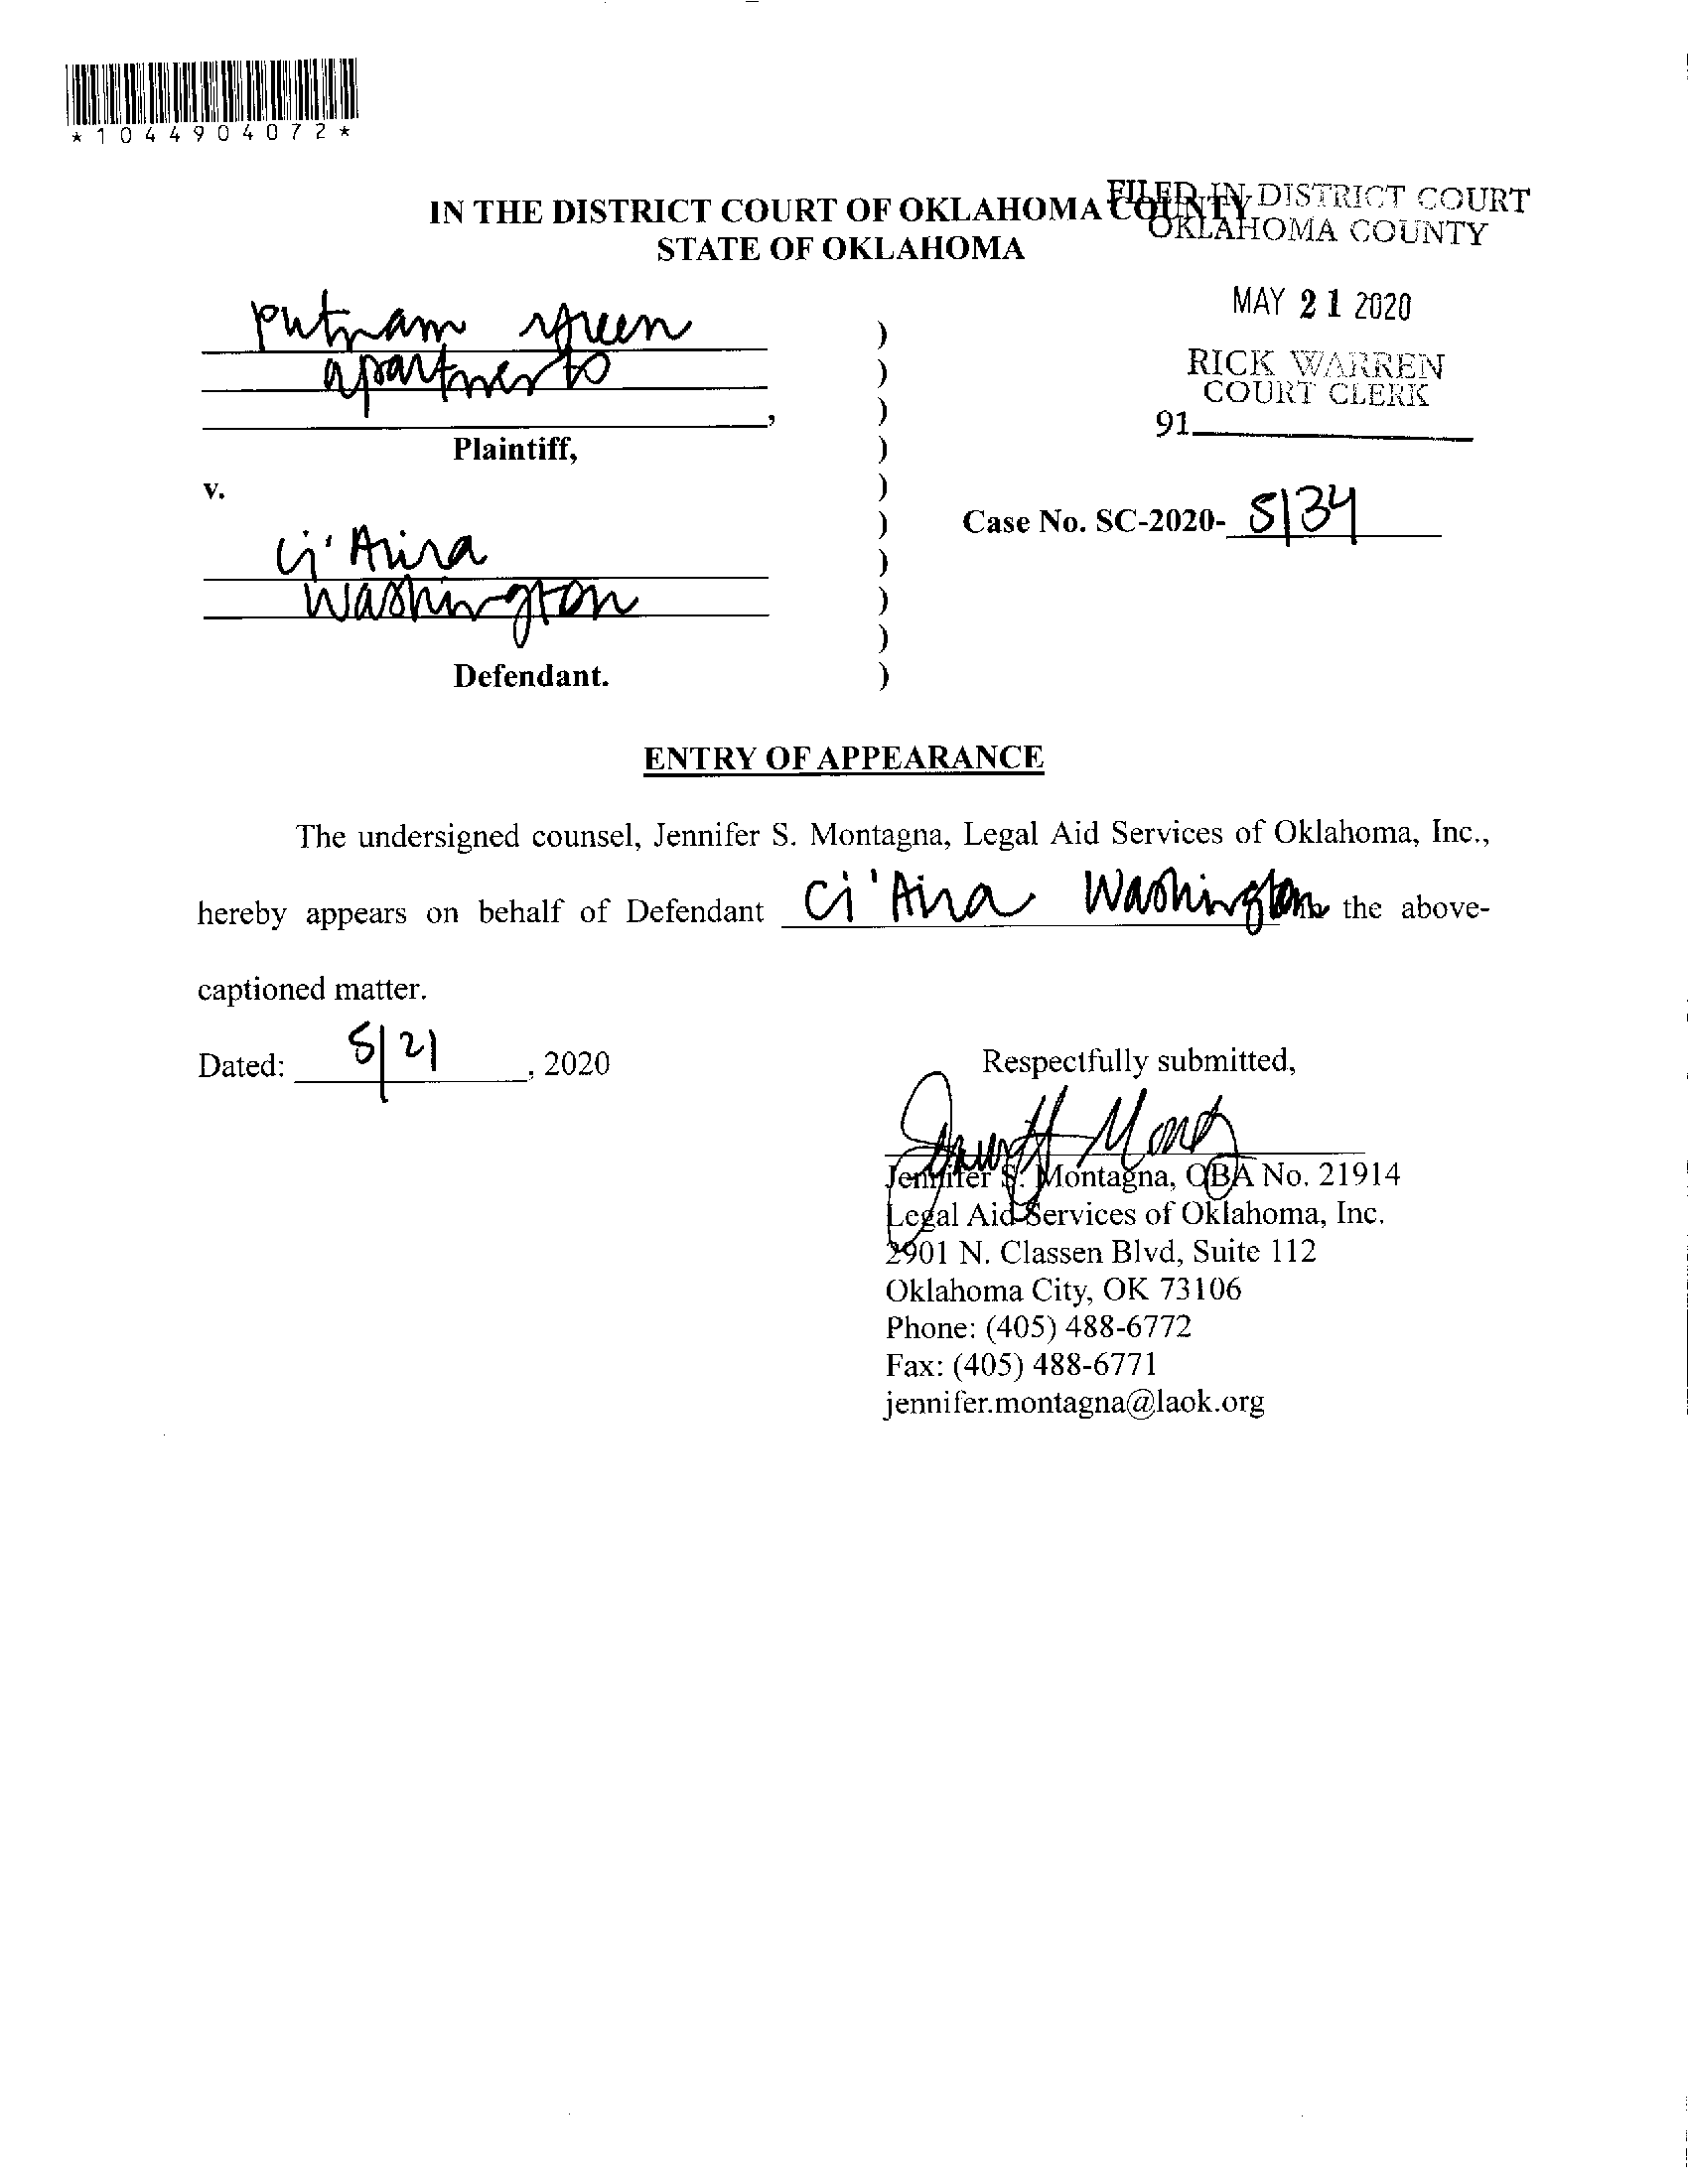 *1044904072*
IN THE DISTRICT COURT OF OKLAHOMA COUNTY
STATE OF OKLAHOMA
FILED IN DISTRICT COURT
OKLAHOMA COUNTY
MAY 21 2020
RICK WARREN
COURT CLERK
91
putnam green
apartments
,
Plaintiff,
v.
Case No. SC-2020- 5134
Ci'Aira
Washington
Defendant.
)
)
)
)
)
)
)
)
)
)
ENTRY OF APPEARANCE
The undersigned counsel, Jennifer S. Montagna, Legal Aid Services of Oklahoma, Inc.,
hereby appears on behalf of Defendant Ci'Aira Washington in the above-
captioned matter.
Dated: 5/21, 2020
Respectfully submitted,
Jennifer S. Montagna, OBA No. 21914
Legal Aid Services of Oklahoma, Inc.
2901 N. Classen Blvd, Suite 112
Oklahoma City, OK 73106
Phone: (405) 488-6772
Fax: (405) 488-6771
jennifer.montagna@laok.org